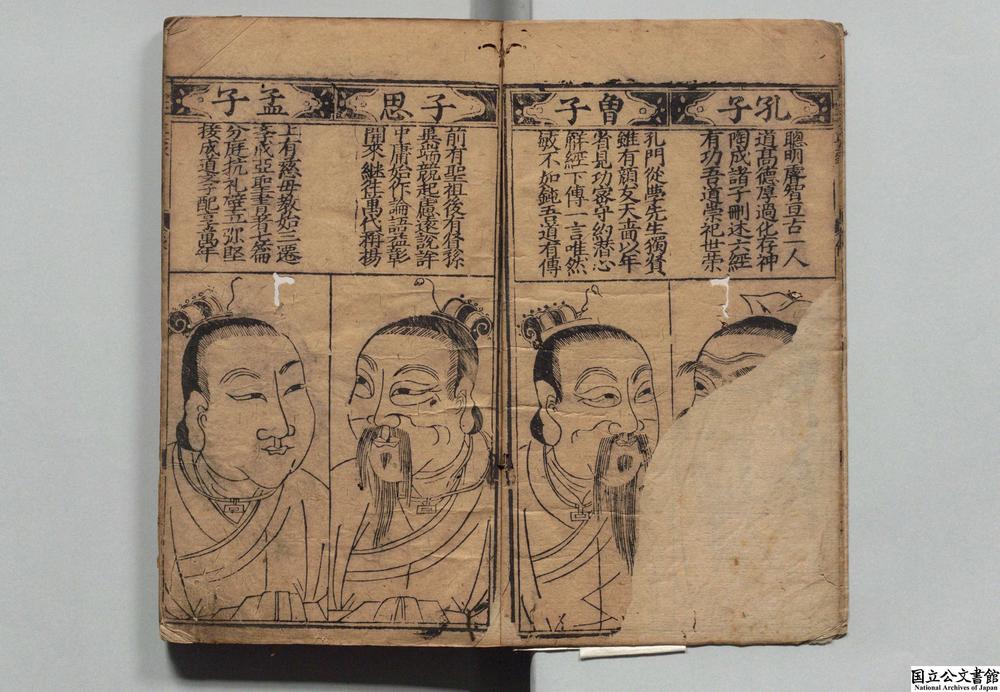 孔子
聰明睿智亘古一人
道高德厚過化存神
陶成諸子刪述六經
有功吾道崇祀世荣
曽子
孔門從學先生獨賢
雖有顔友天啬以年
省見功宻守約潜心
觧經下傳一言唯然
敏不如鈍吾道有傳
子思
前有聖祖後有脊孫
異端競起慮遠說詳
中庸始作論語益彰
開來継往萬代稱揚
孟子
上有慈母教始三遷
克成亞聖書著七篇
分庭抗礼壁立弥堅
接成道 配享萬年
国立公文書館
National Archives of Japan